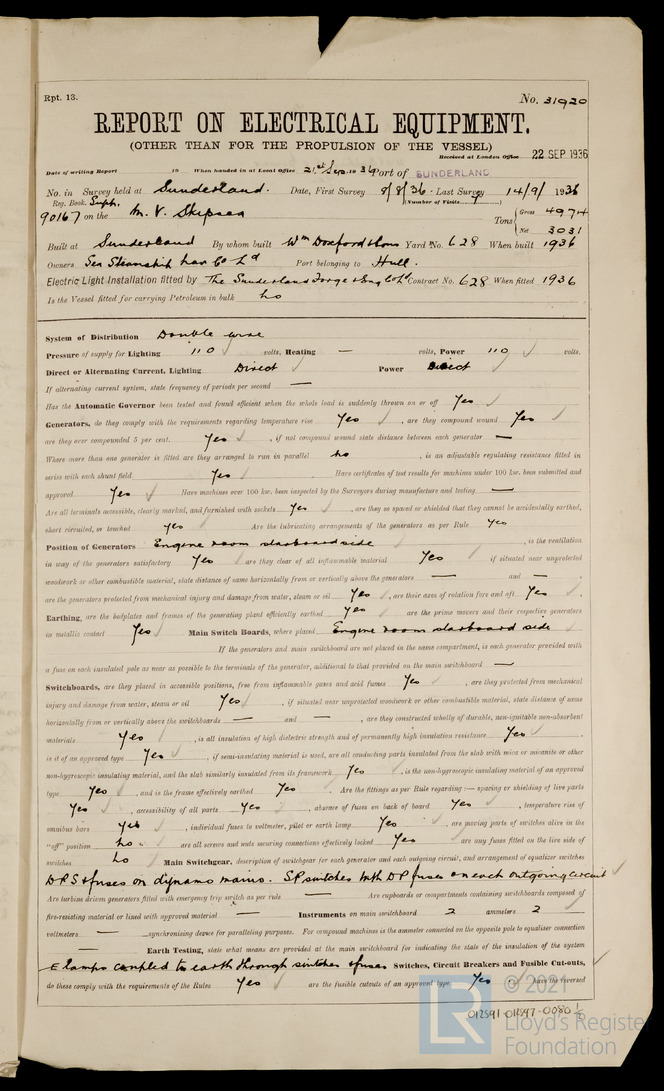 Rpt. 13.
No. 31920
REPORT ON ELECTRICAL EQUIPMENT.
(OTHER THAN FOR THE PROPULSION OF THE VESSEL)
Received at London Office 22 SEP 1936
Date of writing Report 19 When handed in at Local Office 21st Sep. 1936 Port of SUNDERLAND
No. in Survey held at Sunderland. Date, First Survey 8/8/36 Last Survey 14/9/1936
Reg. Book. Suph. (Number of Visits)
90167 on the M.V. Skipsea Tons { Gross 4974 Net 3031
Built at Sunderland By whom built Wm Doxford & Sons Yard No. 628 When built 1936
Owners Sea Steamship Co Ld Port belonging to Hull.
Electric Light Installation fitted by The Sunderland Forge & Eng Co Ld Contract No. 628 When fitted 1936
Is the Vessel fitted for carrying Petroleum in bulk no
System of Distribution Double wire
Pressure of supply for Lighting 110 volts, Heating — volts, Power 110 volts.
Direct or Alternating Current, Lighting Direct Power Direct
If alternating current system, state frequency of periods per second —
Has the Automatic Governor been tested and found efficient when the whole load is suddenly thrown on or off Yes
Generators, do they comply with the requirements regarding temperature rise Yes , are they compound wound Yes
are they over compounded 5 per cent. Yes , if not compound wound state distance between each generator —
Where more than one generator is fitted are they arranged to run in parallel no , is an adjustable regulating resistance fitted in
series with each shunt field Yes Have certificates of test results for machines under 100 kw. been submitted and
approved Yes Have machines over 100 kw. been inspected by the Surveyors during manufacture and testing —
Are all terminals accessible, clearly marked, and furnished with sockets Yes , are they so spaced or shielded that they cannot be accidentally earthed,
short circuited, or touched Yes Are the lubricating arrangements of the generators as per Rule Yes
Position of Generators Engine room starboard side , is the ventilation
in way of the generators satisfactory Yes are they clear of all inflammable material Yes if situated near unprotected
woodwork or other combustible material, state distance of same horizontally from or vertically above the generators — and —
are the generators protected from mechanical injury and damage from water, steam or oil Yes , are their axes of rotation fore and aft Yes
Earthing, are the bedplates and frames of the generating plant efficiently earthed Yes are the prime movers and their respective generators
in metallic contact Yes Main Switch Boards, where placed Engine room starboard side
If the generators and main switchboard are not placed in the same compartment, is each generator provided with
a fuse on each insulated pole as near as possible to the terminals of the generator, additional to that provided on the main switchboard —
Switchboards, are they placed in accessible positions, free from inflammable gases and acid fumes Yes , are they protected from mechanical
injury and damage from water, steam or oil Yes , if situated near unprotected woodwork or other combustible material, state distance of same
horizontally from or vertically above the switchboards — and — , are they constructed wholly of durable, non-ignitable non-absorbent
materials Yes , is all insulation of high dielectric strength and of permanently high insulation resistance Yes ,
is it of an approved type Yes , if semi-insulating material is used, are all conducting parts insulated from the slab with mica or micanite or other
non-hygroscopic insulating material, and the slab similarly insulated from its framework Yes , is the non-hygroscopic insulating material of an approved
type Yes , and is the frame effectively earthed Yes Are the fittings as per Rule regarding:— spacing or shielding of live parts
Yes , accessibility of all parts Yes , absence of fuses on back of board Yes , temperature rise of
omnibus bars Yes , individual fuses to voltmeter, pilot or earth lamp Yes are moving parts of switches alive in the
"off" position no are all screws and nuts securing connections effectively locked Yes are any fuses fitted on the live side of
switches no Main Switchgear, description of switchgear for each generator and each outgoing circuit, and arrangement of equalizer switches
D.P.S & fuses on dynamo mains. S.P switches with D.P fuses on each outgoing circuit
Are turbine driven generators fitted with emergency trip switch as per rule — Are cupboards or compartments containing switchboards composed of
fire-resisting material or lined with approved material — Instruments on main switchboard 2 ammeters 2
voltmeters — synchronising device for paralleling purposes. For compound machines is the ammeter connected on the opposite pole to equaliser connection
— Earth Testing, state what means are provided at the main switchboard for indicating the state of the insulation of the system
E lamps coupled to earth through switches & fuses Switches, Circuit Breakers and Fusible Cut-outs,
do these comply with the requirements of the Rules Yes are the fusible cutouts of an approved type Yes have the reversed
LR © 2021
Lloyd's Register
Foundation
012591-012597-0080 1/2